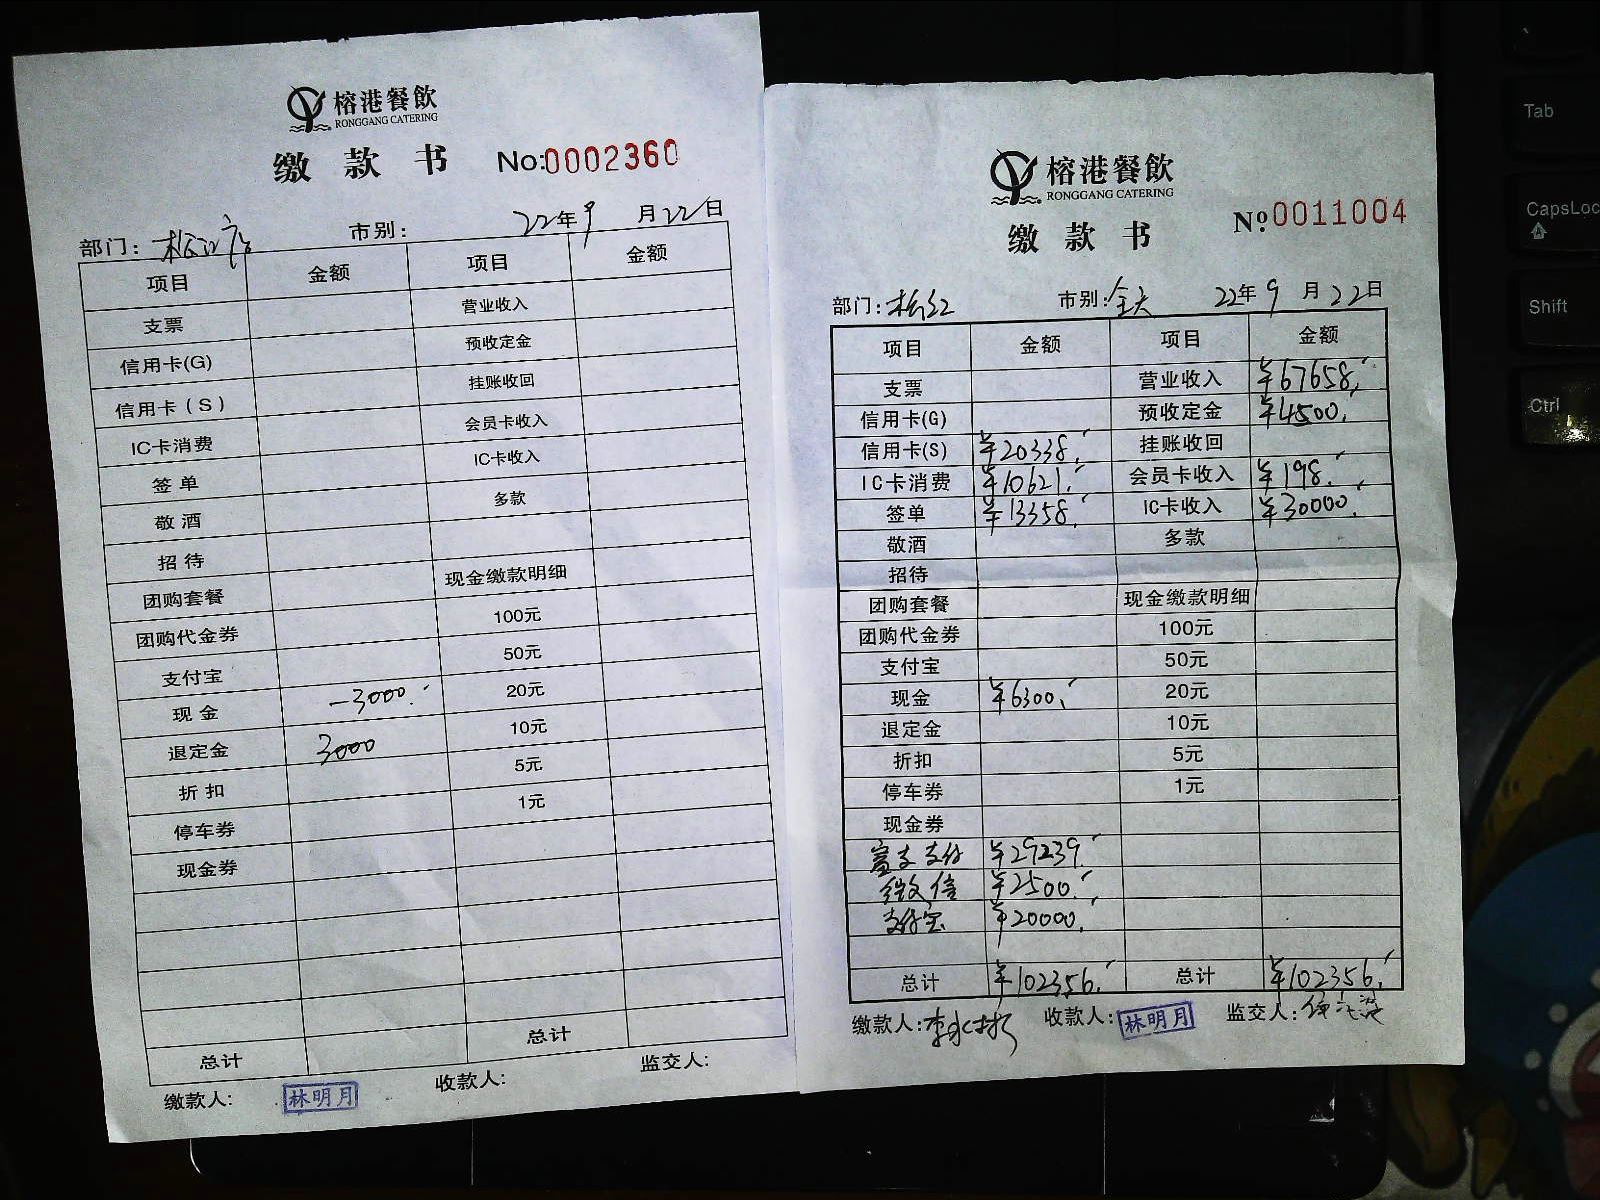 榕港餐飲
RONGGANG CATERING
缴款书 No:0002360
部门: 市别: 22年9月22日
项目 金额 项目 金额
支票 营业收入
信用卡(G) 预收定金
信用卡(S) 挂账收回
IC卡消费 会员卡收入
签单 IC卡收入
敬酒 多款
招待
团购套餐 现金缴款明细
团购代金券 100元
支付宝 50元
现金 -3000. 20元
退定金 3000 10元
折扣 5元
停车券 1元
现金券
总计 总计
缴款人: 林明月 收款人: 监交人:
榕港餐飲
RONGGANG CATERING
缴款书 Nº0011004
部门: 市别:全天 22年9月22日
项目 金额 项目 金额
支票 营业收入 ¥67658.
信用卡(G) 预收定金 ¥4500.
信用卡(S) ¥20338. 挂账收回
IC卡消费 ¥10621. 会员卡收入 ¥198.
签单 ¥13358. IC卡收入 ¥30000.
敬酒 多款
招待
团购套餐 现金缴款明细
团购代金券 100元
支付宝 50元
现金 ¥6300. 20元
退定金 10元
折扣 5元
停车券 1元
现金券
富友支付 ¥29239.
微信 ¥2500.
支付宝 ¥20000.
总计 ¥102356. 总计 ¥102356.
缴款人: 收款人: 林明月 监交人:
Tab
CapsLoc
Shift
Ctrl